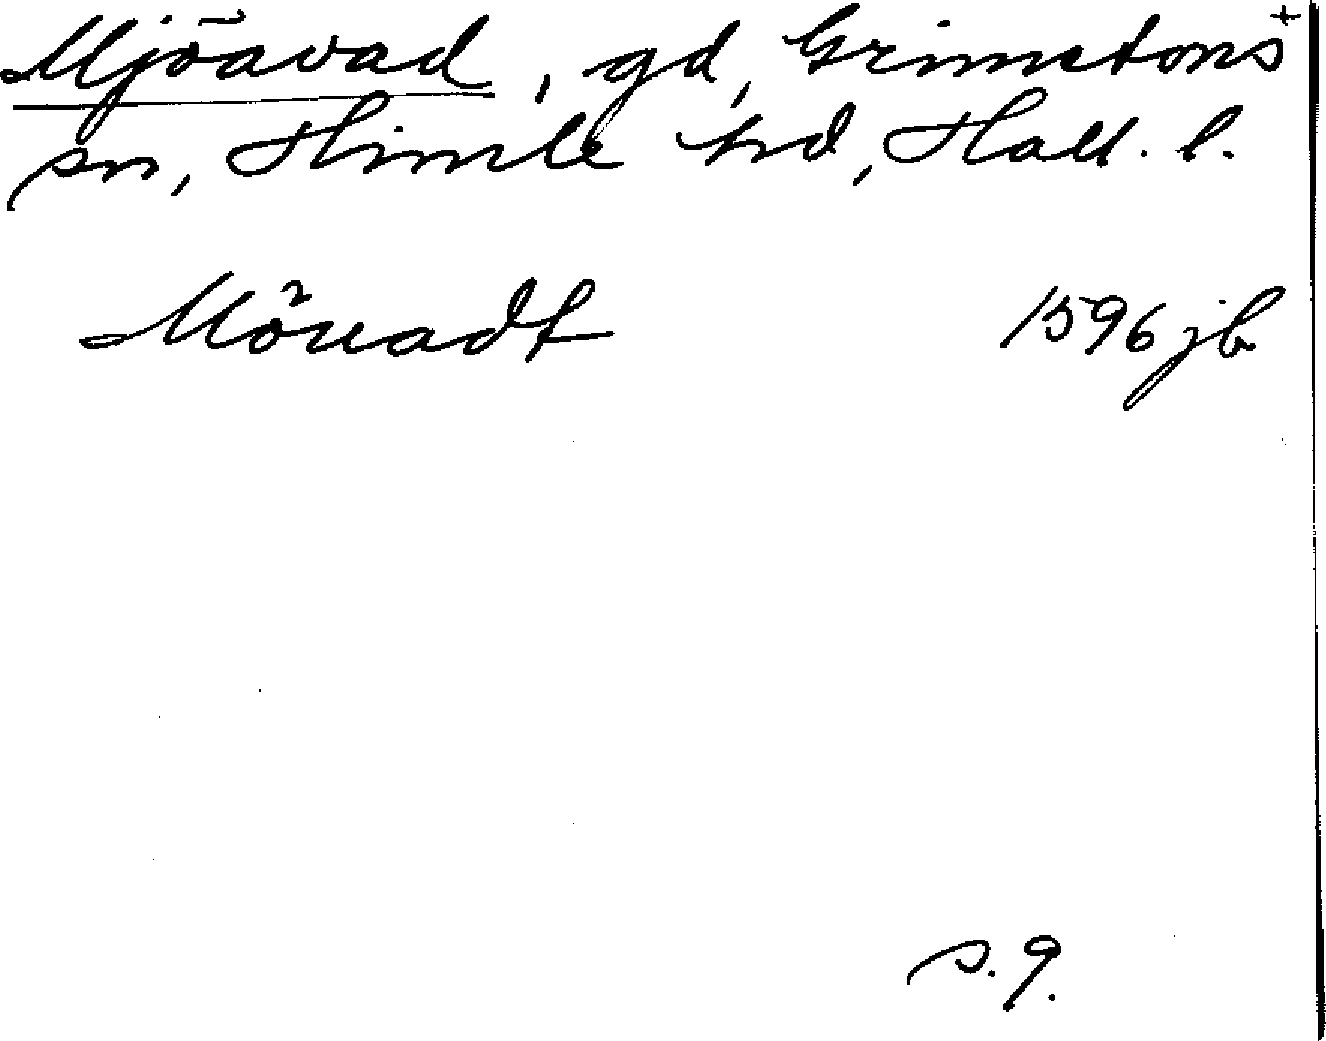 Mjöavad, gd, Grimetons +
sn, Himle hd, Hall. l.
Möuadt 1596 jb
s. 9.